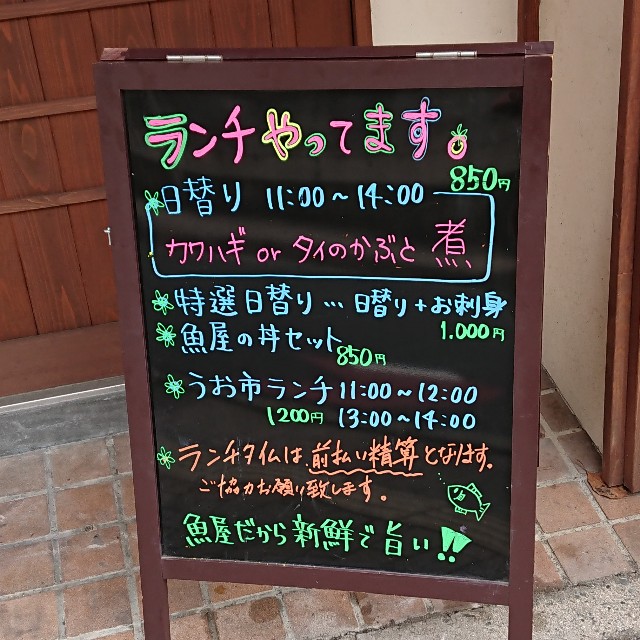 ランチやってます。
日替り 11:00～14:00 850円
カワハギ or タイのかぶと 煮
特選日替り… 日替り+お刺身
1.000円
魚屋の丼セット
850円
うお市ランチ 11:00～12:00
1200円 13:00～14:00
ランチタイムは前払い精算となります。
ご協力お願い致します。
魚屋だから新鮮で旨い!!